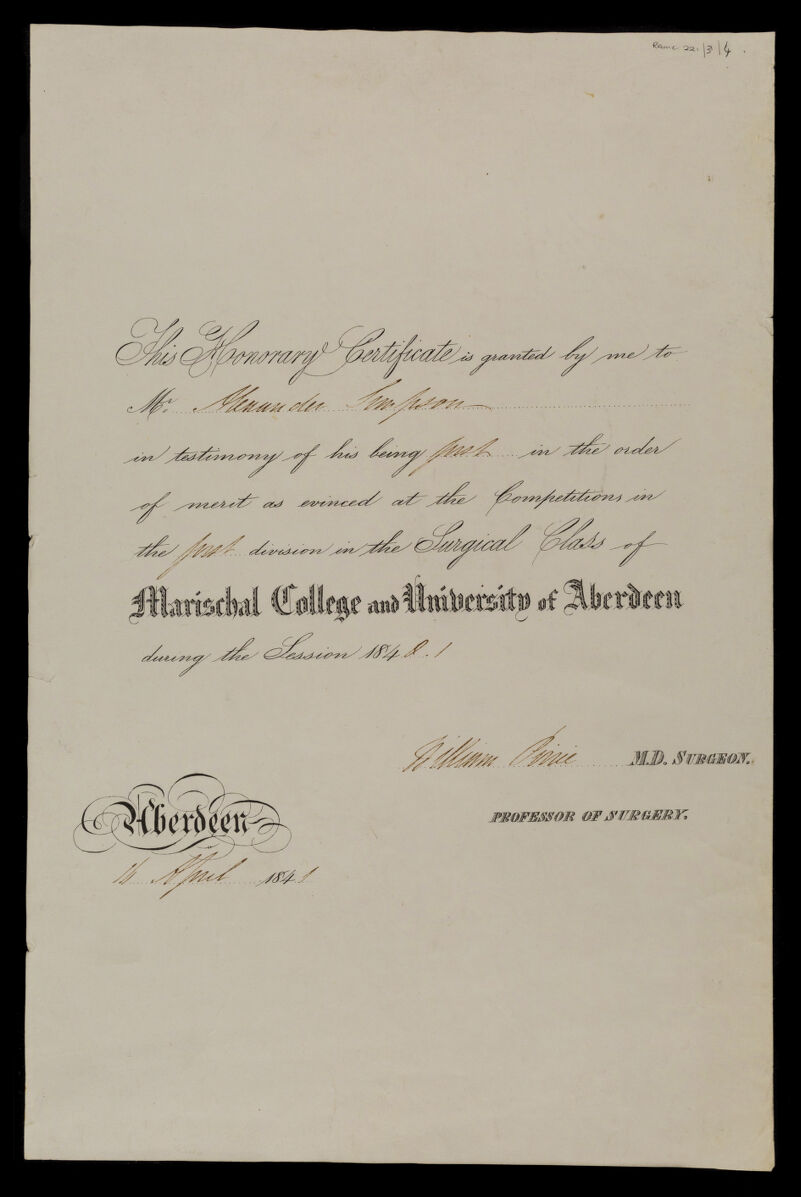 RAMC 221/3/4.
This Honorary Certificate is granted by me to
Mr. Alexander Simpson
in testimony of his being first in the order
of merit as evinced at the Competitions in
the first division in the Surgical Class of
Marischal College and University of Aberdeen
during the Session 1840.1
William Pirrie M.D. SURGEON.
PROFESSOR OF SURGERY.
Aberdeen
April 1841